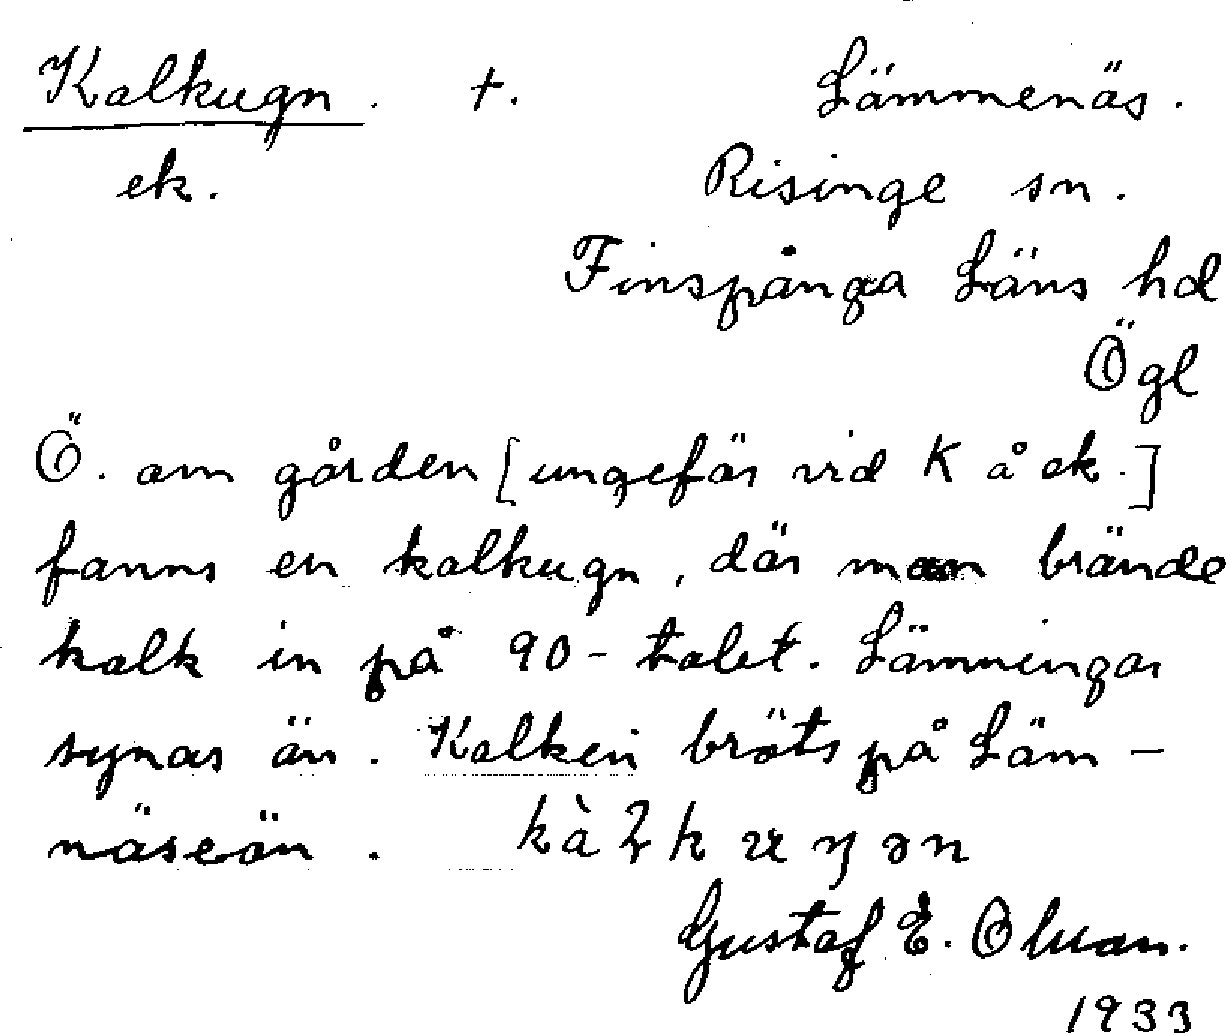 Kalkugn. †. Lämmenäs.
ek. Risinge sn.
Finspånga Läns hd
Ögl
Ö. om gården [ungefär vid K å ek.]
fanns en kalkugn, där man brände
kalk in på 90-talet. Lämningar
synas än. Kalken bröts på Läm-
näseön.
Gustaf E.
1933